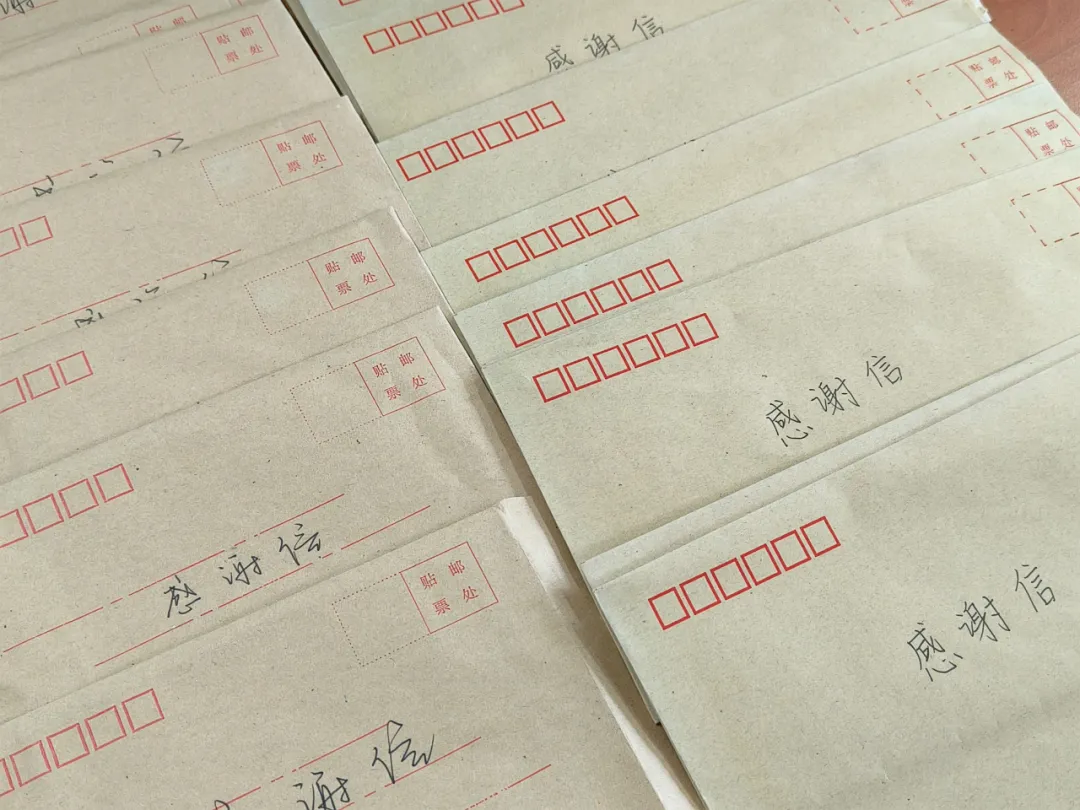 谢
贴邮
票处
贴邮
票处
贴邮
票处
贴邮
票处
贴邮
票处
感谢信
贴邮
票处
谢信
感谢信
贴邮
票处
贴邮
票处
感谢信
感谢信